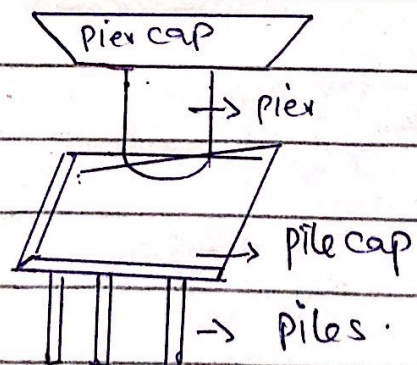 pier cap
pier
pile cap
piles.